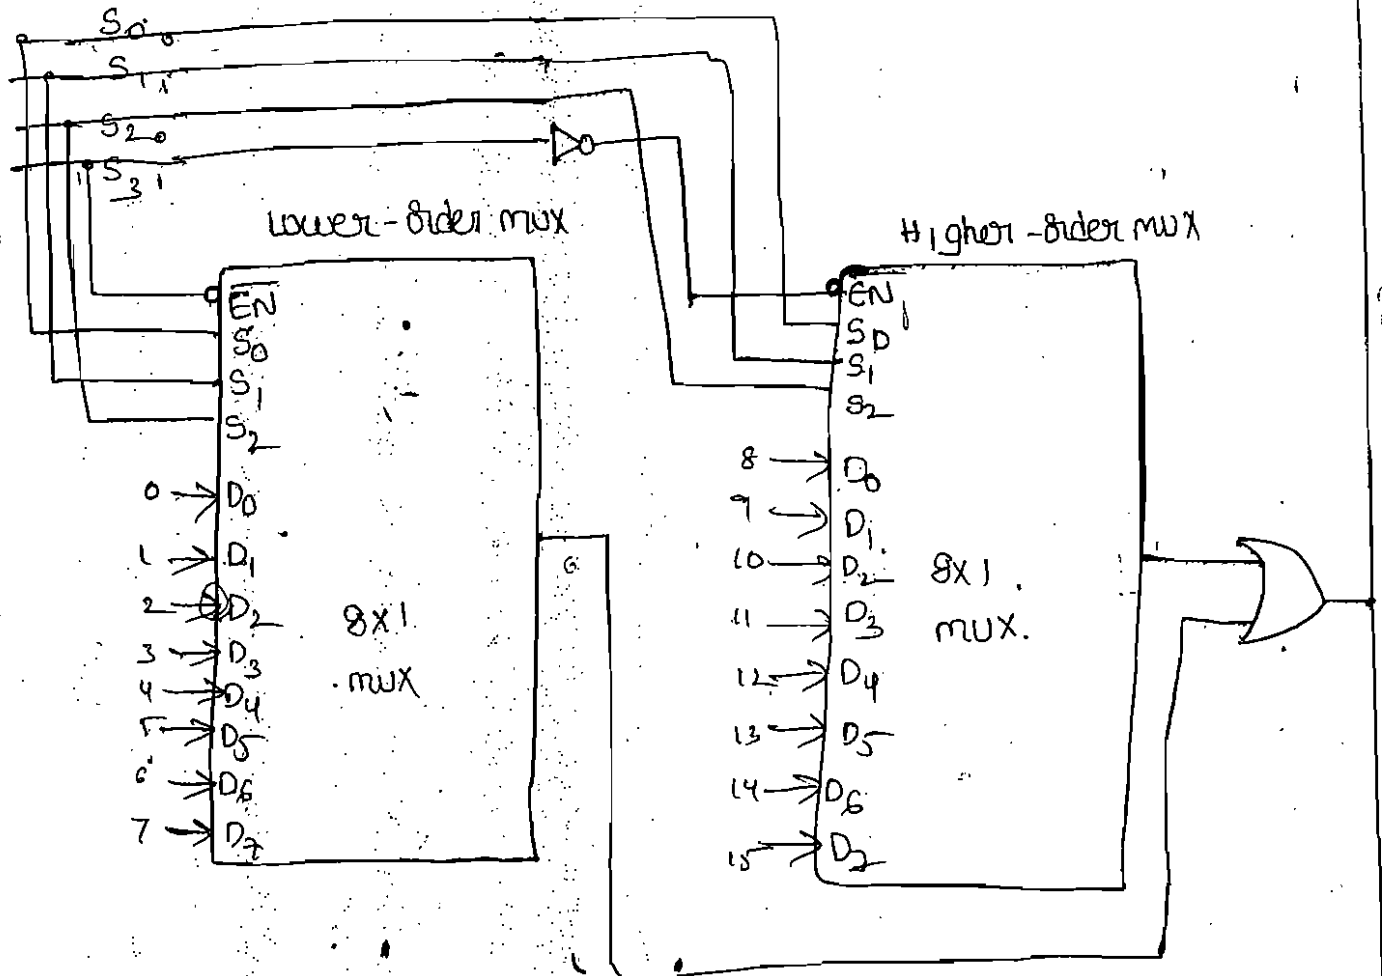 S0 0
S1 1
S2 0
1 S3 1
Lower-order mux
Higher-order mux
EN
S0
S1
S2
0 D0
1 D1
2 D2
3 D3
4 D4
5 D5
6 D6
7 D7
8x1
mux
EN
S0
S1
S2
8 D0
9 D1
10 D2
11 D3
12 D4
13 D5
14 D6
15 D7
8x1
mux.